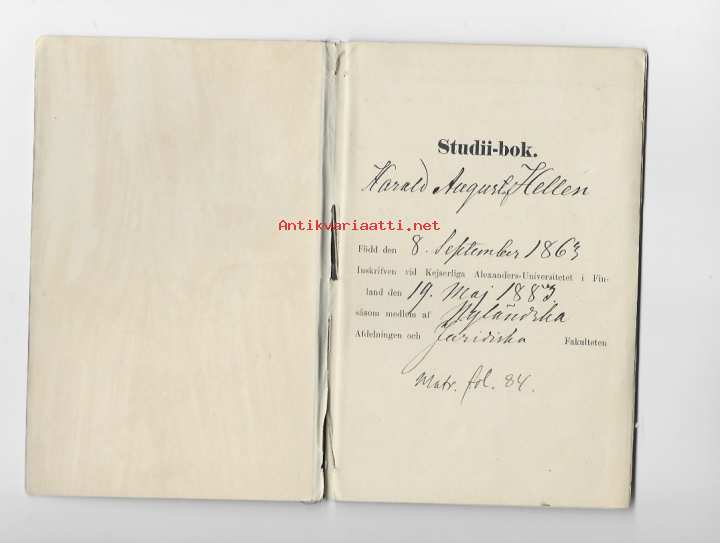 Studii-bok.
Harald August Hellén
Antikvariaatti.net
Född den 8. September 1863
Inskrifven vid Kejserliga Alexanders-Universitetet i Fin-
land den 19. Maj 1883.
såsom medlem af Nyländska
Afdelningen och Juridiska Fakulteten
Matr. fol. 84.